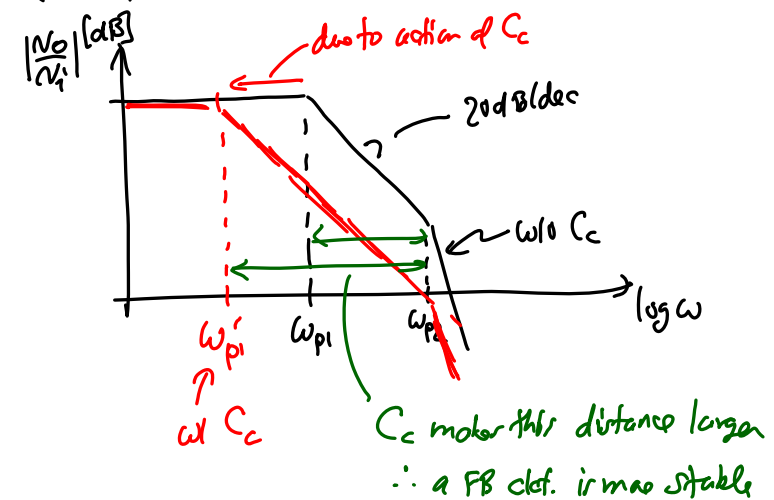 |No/Ni| [dB]
due to action of Cc
20dB/dec
w/o Cc
log ω
ωp1' ωp1 ωp2
w/ Cc
Cc makes this distance larger
∴ a FB ckt. is more stable